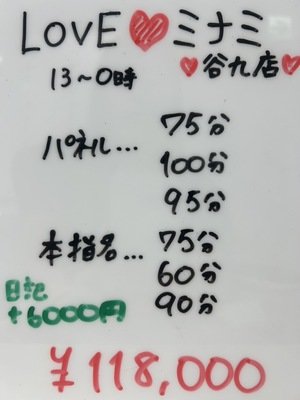 LOVE♥ミナミ
♥谷九店♥
13~0時
パネル... 75分
100分
95分
本指名... 75分
60分
90分
日記
+6000円
¥118,000